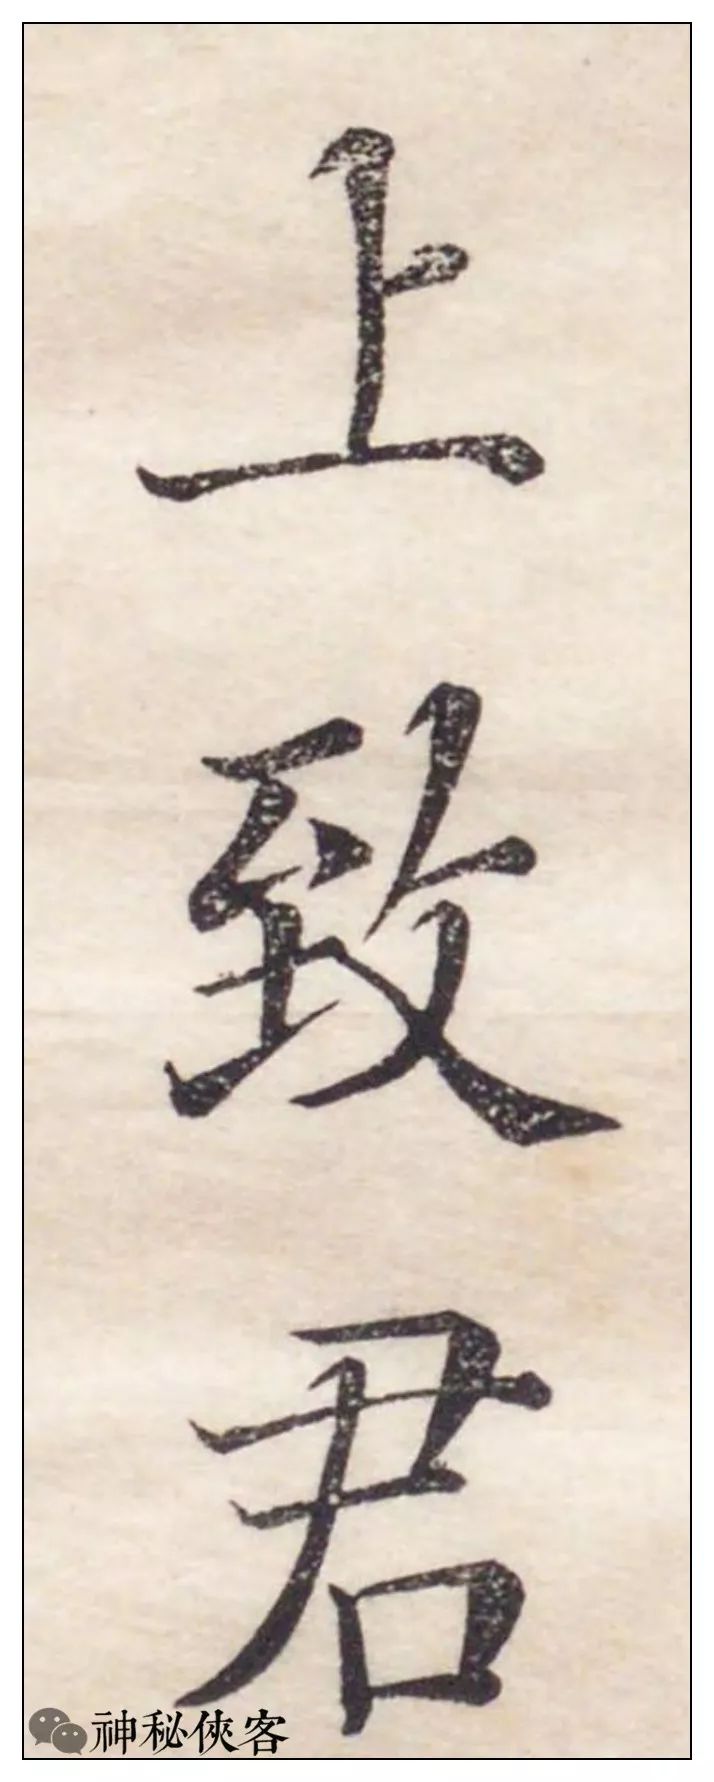 上致君
神秘俠客